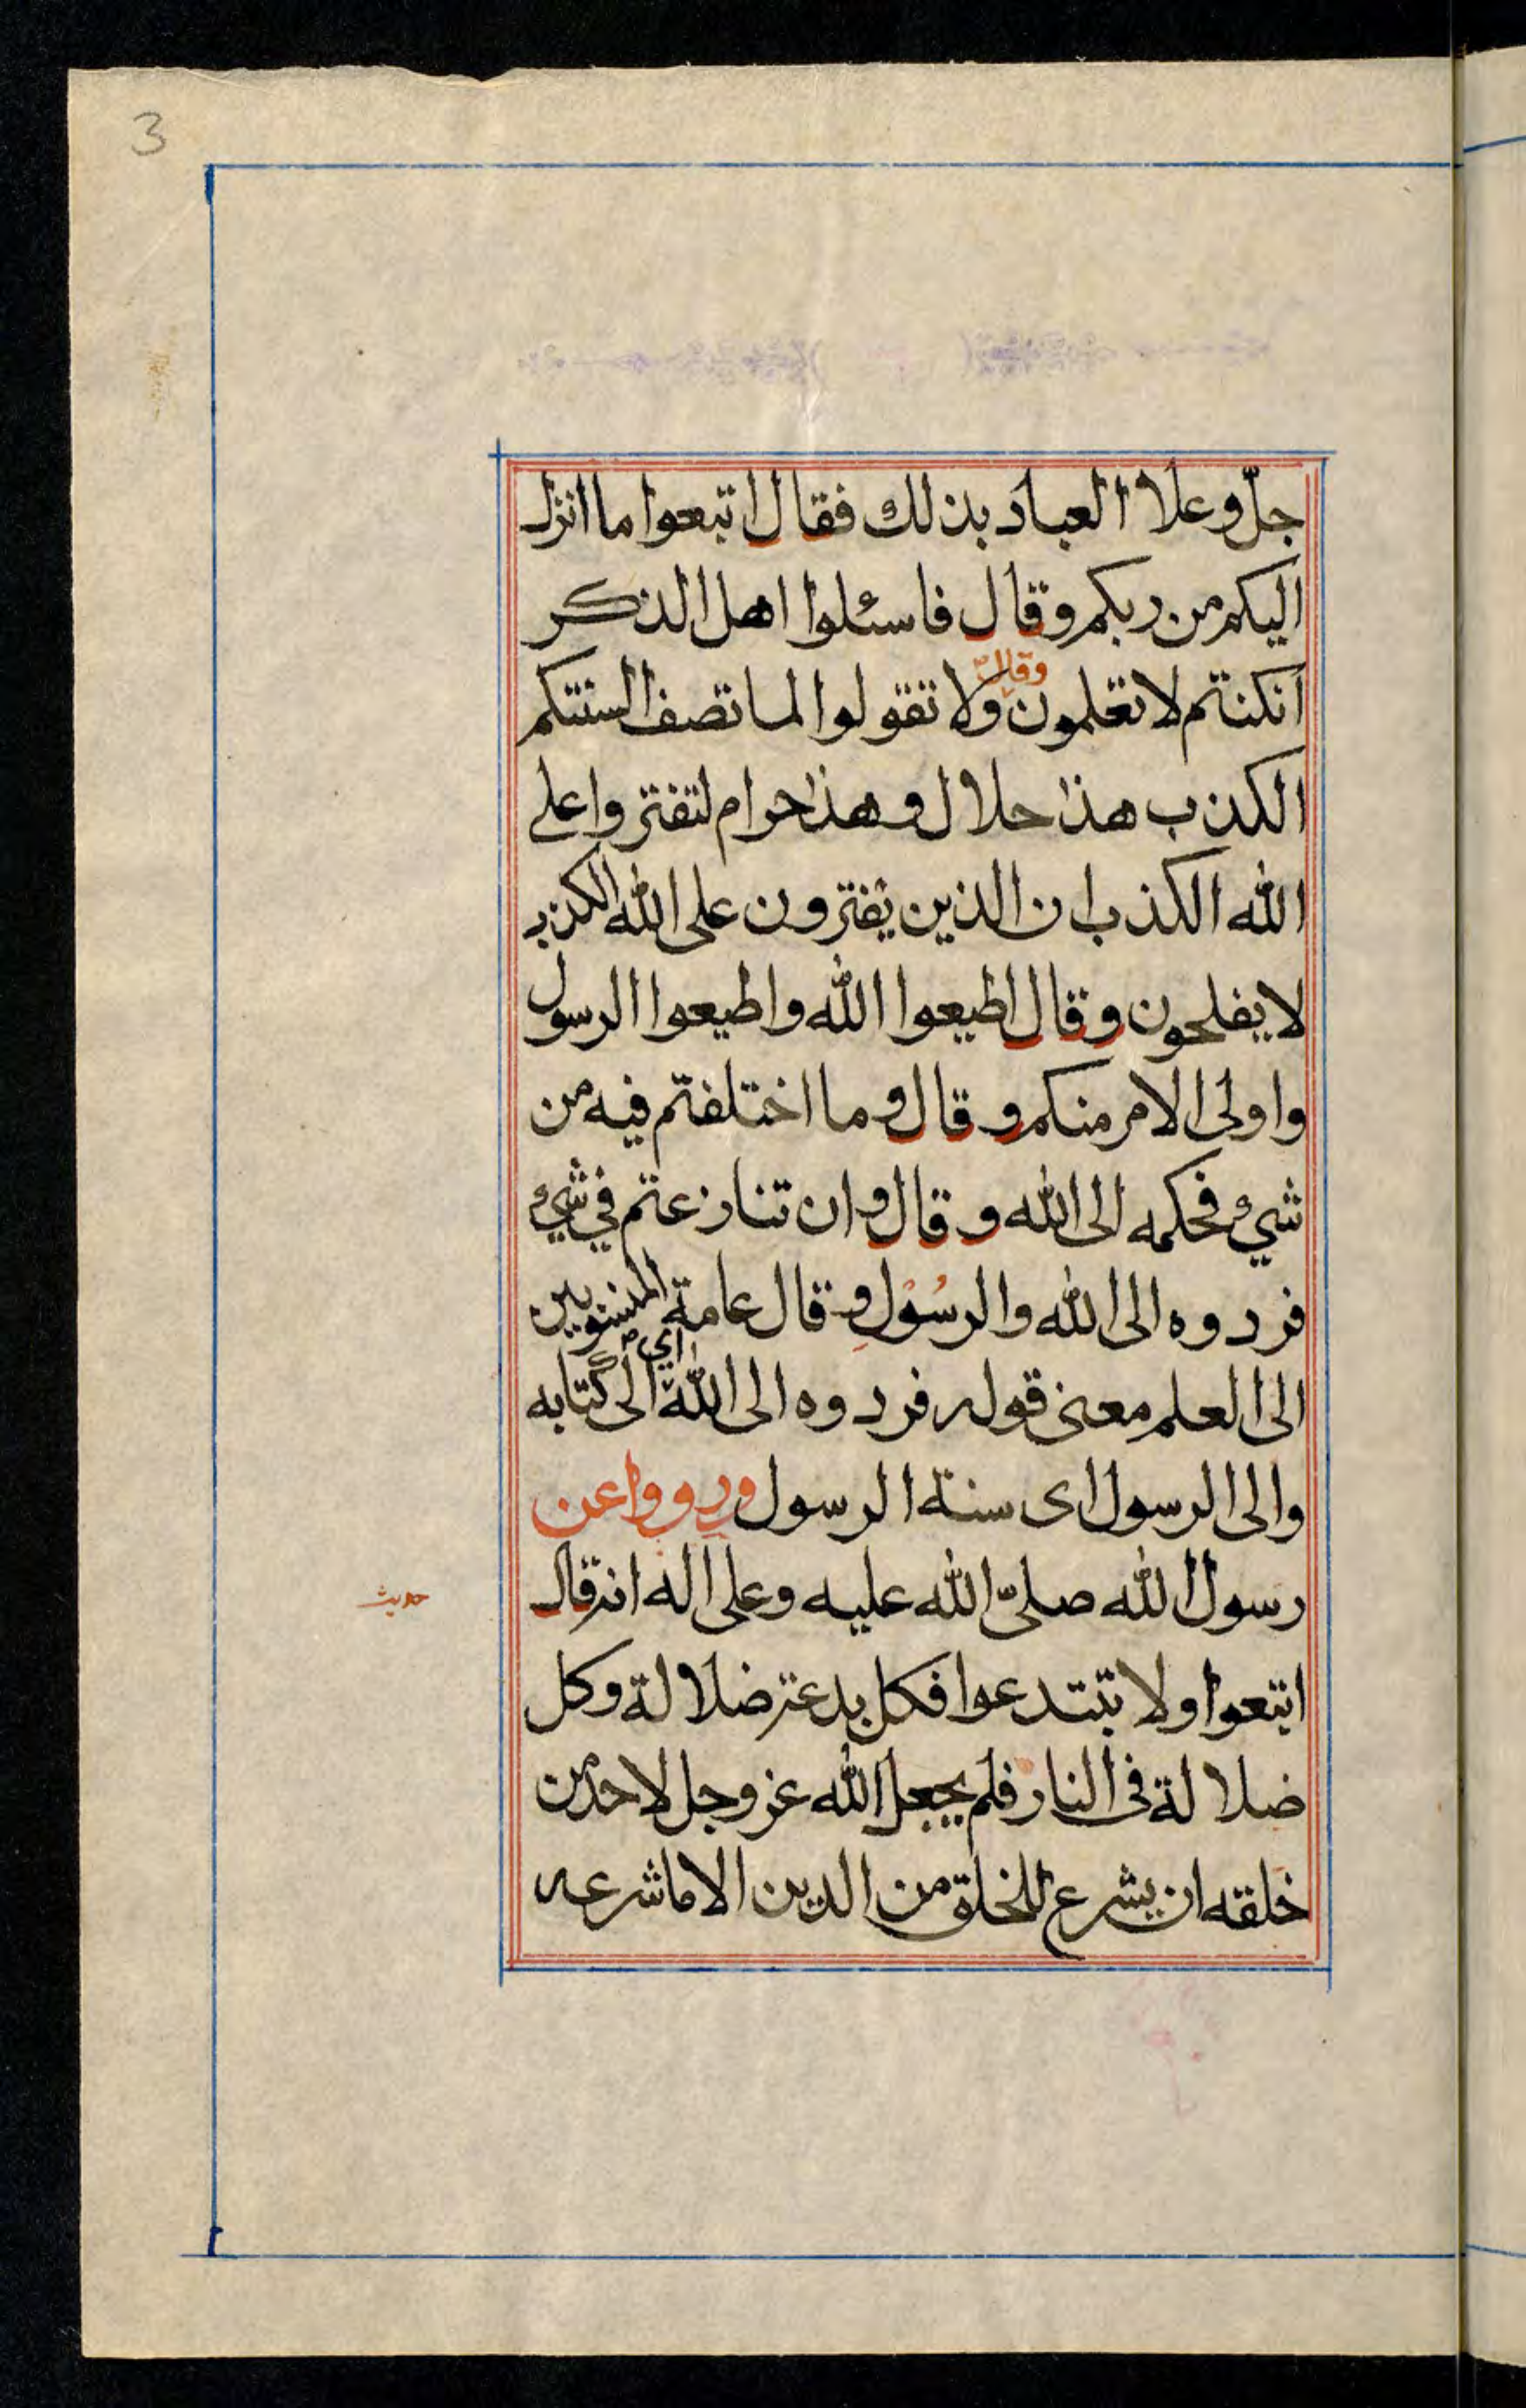 3
جلّ وعلا العباد بذلك فقال اتبعوا ما انزل
اليكم من ربكم وقال فاسئلوا اهل الذكر
ان كنتم لا تعلمون وقال ولا تقولوا لما تصف السنتكم
الكذب هذا حلال وهذا حرام لتفتروا على
الله الكذب ان الذين يفترون على الله الكذب
لا يفلحون وقال اطيعوا الله واطيعوا الرسول
واولى الامر منكم وقال وما اختلفتم فيه من
شيء فحكمه الى الله وقال وان تنازعتم في شيء
فردوه الى الله والرسول وقال عامة المنسوبين
الى العلم معنى قوله فردوه الى الله اي الى كتابه
والى الرسول اى سنة الرسول ورووا عن
رسول الله صلىّ الله عليه وعلى اله انه قال
حديث
اتبعوا ولا تبتدعوا فكل بدعة ضلالة وكل
ضلالة فى النار فلم يجعل الله عز وجل لاحد من
خلقه ان يشرع للخلق من الدين الا ما شرعه